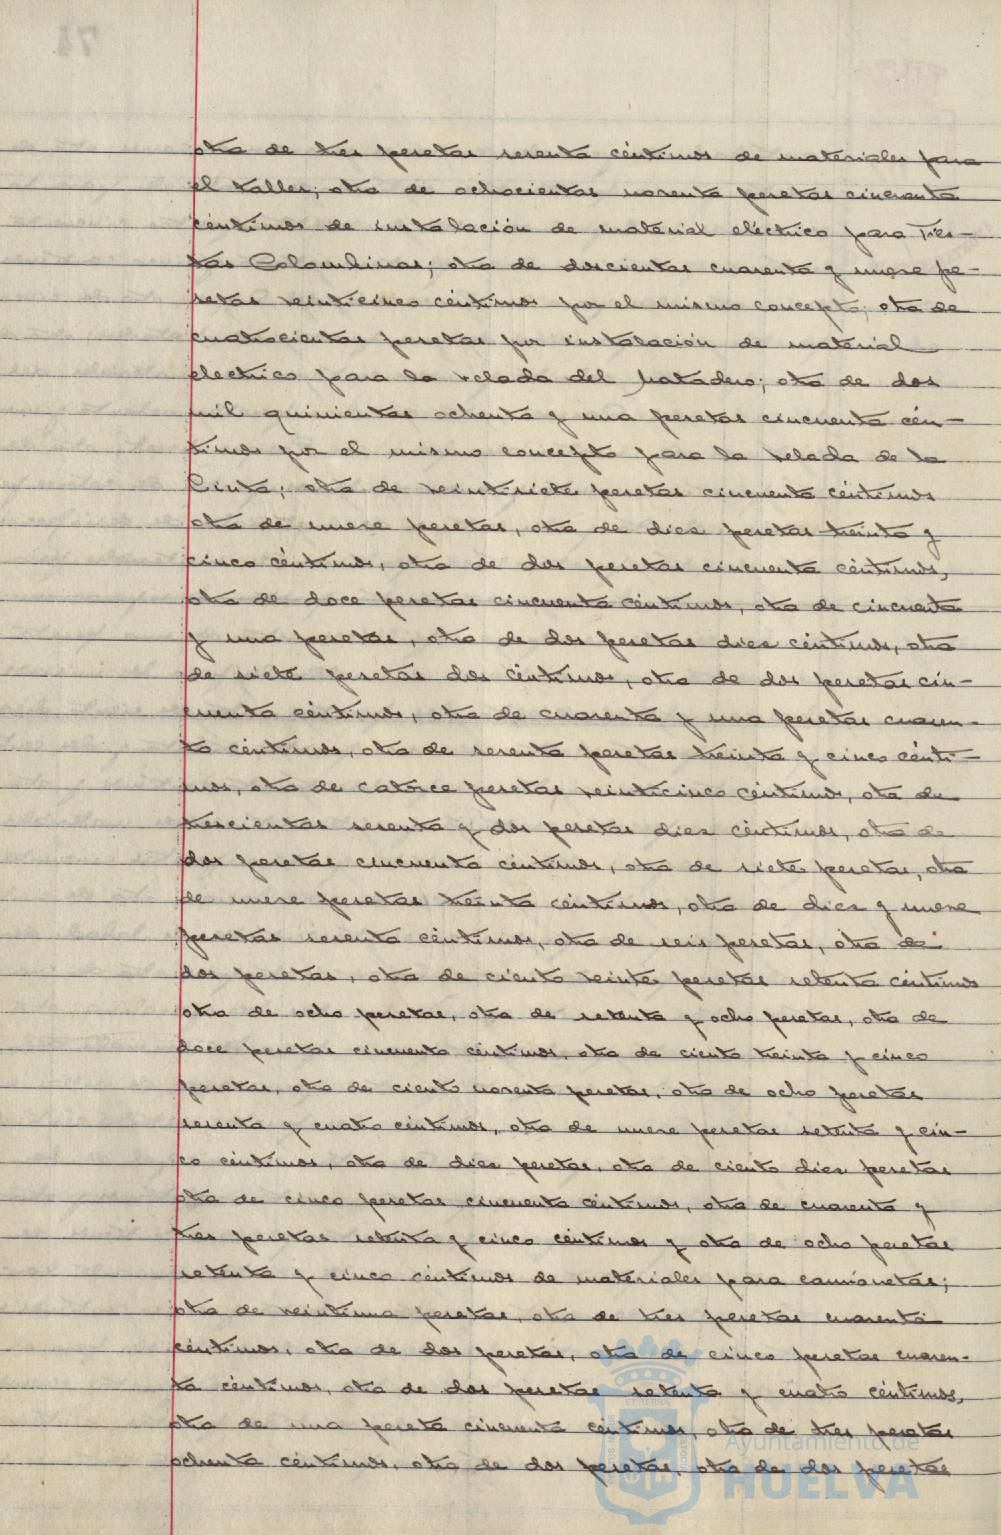 otra de tres pesetas sesenta céntimos de materiales para
el taller; otra de ochocientas noventa pesetas cincuenta
céntimos de instalación de material eléctrico para Fies-
tas Colombinas; otra de doscientas cuarenta y nueve pe-
setas veinticinco céntimos por el mismo concepto; otra de
cuatrocientas pesetas por instalación de material
electrico para la velada del Matadero; otra de dos
mil quinientas ochenta y una pesetas cincuenta cén-
timos por el mismo concepto para la velada de la
Cinta; otra de veintisiete pesetas cincuenta céntimos
otra de nueve pesetas, otra de diez pesetas treinta y
cinco céntimos, otra de dos pesetas cincuenta céntimos,
otra de doce pesetas cincuenta céntimos, otra de cincuenta
y una pesetas, otra de dos pesetas diez céntimos, otra
de siete pesetas dos céntimos, otra de dos pesetas cin-
cuenta céntimos, otra de cuarenta y una pesetas cuaren-
ta céntimos, otra de sesenta pesetas treinta y cinco cénti-
mos, otra de catorce pesetas veinticinco céntimos, otra de
trescientas sesenta y dos pesetas diez céntimos, otra de
dos pesetas cincuenta céntimos, otra de siete pesetas, otra
de nueve pesetas treinta céntimos, otra de diez y nueve
pesetas sesenta céntimos, otra de seis pesetas, otra de
dos pesetas, otra de ciento veinte pesetas setenta céntimos
otra de ocho pesetas, otra de setenta y ocho pesetas, otra de
doce pesetas cincuenta céntimos, otra de ciento treinta y cinco
pesetas, otra de ciento noventa pesetas, otra de ocho pesetas
sesenta y cuatro céntimos, otra de nueve pesetas setenta y cin-
co céntimos, otra de diez pesetas, otra de ciento diez pesetas
otra de cinco pesetas cincuenta céntimos, otra de cuarenta y
tres pesetas setenta y cinco céntimos y otra de ocho pesetas
setenta y cinco céntimos de materiales para camionetas;
otra de veintiuna pesetas, otra de tres pesetas cuarenta
céntimos, otra de dos pesetas, otra de cinco pesetas cuaren-
ta céntimos, otra de dos pesetas setenta y cuatro céntimos,
otra de una peseta cincuenta céntimos, otra de tres pesetas
ochenta céntimos, otra de dos pesetas, otra de dos pesetas
Ayuntamiento de
HUELVA